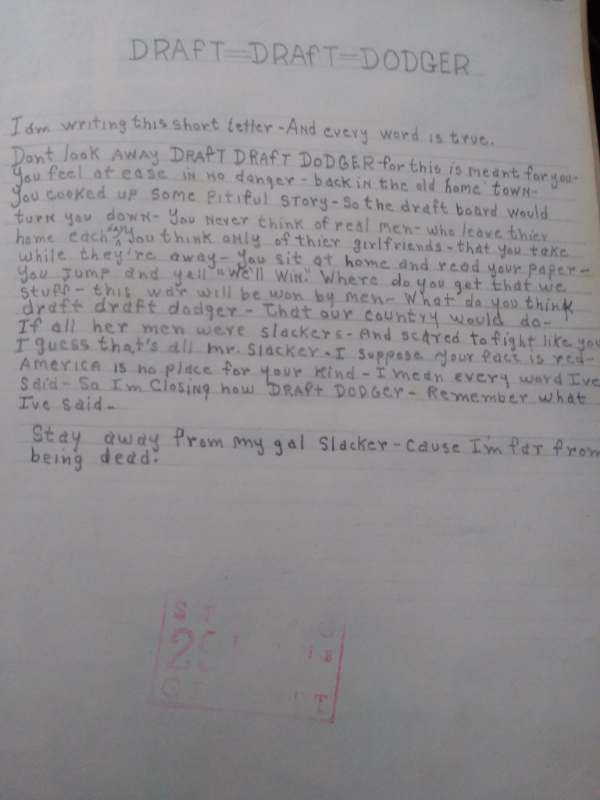 DRAFT=DRAFT=DODGER
I am writing this short letter-And every word is true.
Dont look AWAY DRAFT DRAFT DODGER-for this is meant for you-
You feel at ease in no danger-back in the old home town-
You cooked up some pitiful story-So the draft board would
turn you down-You never think of real men-who leave thier
home each day you think only of thier girlfriends-that you take
while they're away-You sit at home and read your paper-
You Jump and yell "We'll Win." Where do you get that we
stuff-this war will be won by men-What do you think
draft draft dodger-That our country would do-
If all her men were slackers-And scared to fight like you
I guess that's all mr. slacker-I suppose your face is red-
AMERICA is no place for your kind-I mean every word I've
said-So Im closing now DRAFT DODGER-Remember what
Ive said-
Stay away from my gal slacker-cause I'm far from
being dead.
S T
2